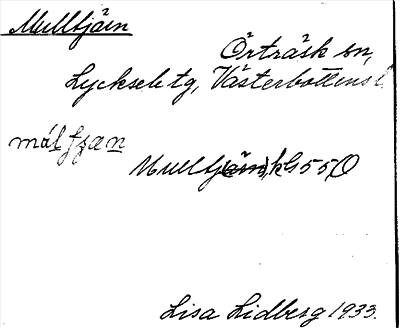 Mulltjärn
Örträsk sn,
Lycksele tg, Västerbottens l.
Mulltjärn, kG 55 O
Lisa Lidberg 1933.